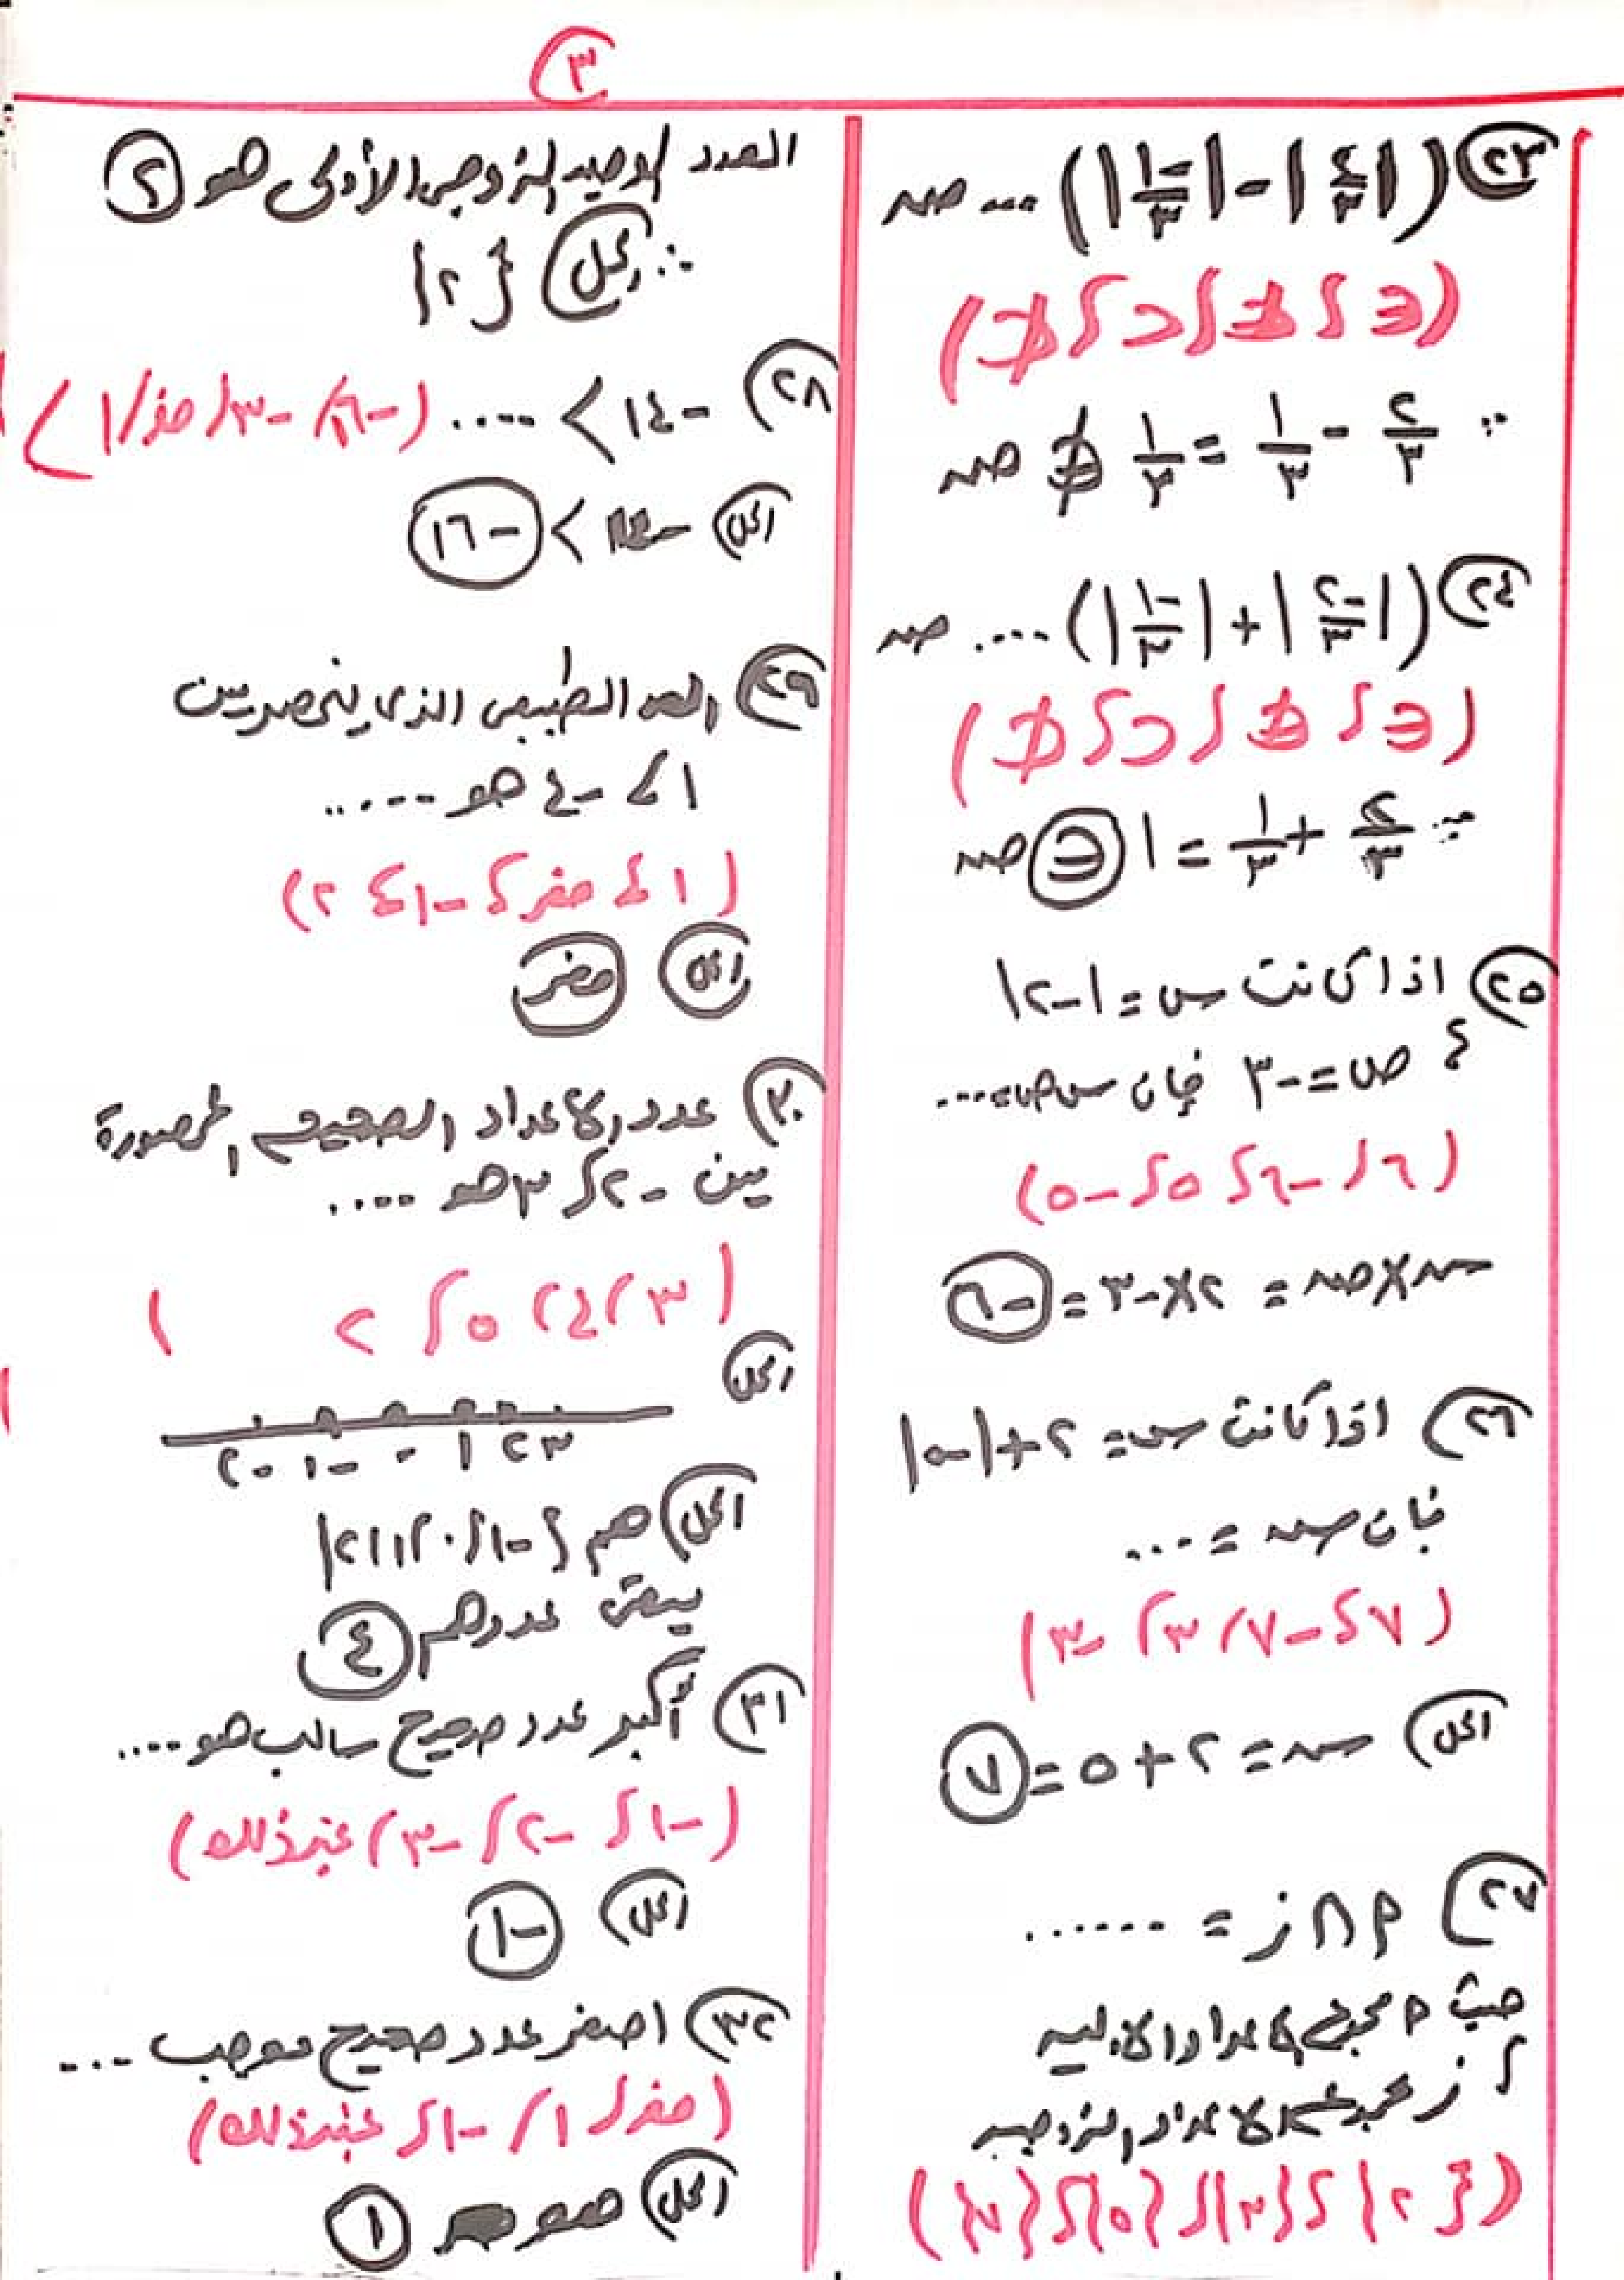 ٣
٢٣ (|٢/٣| - |-١/٣|) ... صـ
(∈ ، ∉ ، ⊂ ، ⊄)
∵ ٢/٣ - ١/٣ = ١/٣ ∉ صـ
٢٤ (|-٢/٣| + |-١/٣|) .... صـ
(∈ ، ∉ ، ⊂ ، ⊄)
∵ ٢/٣ + ١/٣ = ١ ∈ صـ
٢٥ اذا كانت س = |-٢|
، ص = -٣ فإن س ص = ....
(٦ ، -٦ ، ٥ ، -٥)
س × ص = ٢ × -٣ = -٦
٢٦ اذا كانت س = ٢ + |-٥|
فإن س = ....
(٧ ، -٧ ، ٣ ، -٣)
الحل س = ٢ + ٥ = ٧
٢٧ م ∩ ز = ......
حيث م مجموعة الاعداد الاوليه
، ز مجموعة الاعداد الزوجيه
({٢} ، {٣} ، {٥} ، {٧})
العدد الوحيد الزوجى الأولى هو ٢
∴ الحل {٢}
٢٨ -١٤ > .... (-١٦ ، -٣ ، صفر ، ١)
الحل -١٤ > -١٦
٢٩ العدد الطبيعى الذى ينحصر بين
١ ، -٤ هو .....
(١ ، صفر ، -١ ، ٢)
الحل صفر
٣٠ عدد الاعداد الصحيحه المحصورة
بين -٢ ، ٣ هو ....
(٣ ، ٤ ، ٥ ، ٢)
الحل
-٢ -١ ٠ ١ ٢ ٣
الحل هم {-١ ، ٠ ، ١ ، ٢}
يبقى عددهم ٤
٣١ أكبر عدد صحيح سالب هو ....
(-١ ، -٢ ، -٣ ، غير ذلك)
الحل -١
٣٢ اصغر عدد صحيح موجب ...
(صفر ، ١ ، -١ ، غير ذلك)
الحل هو ١